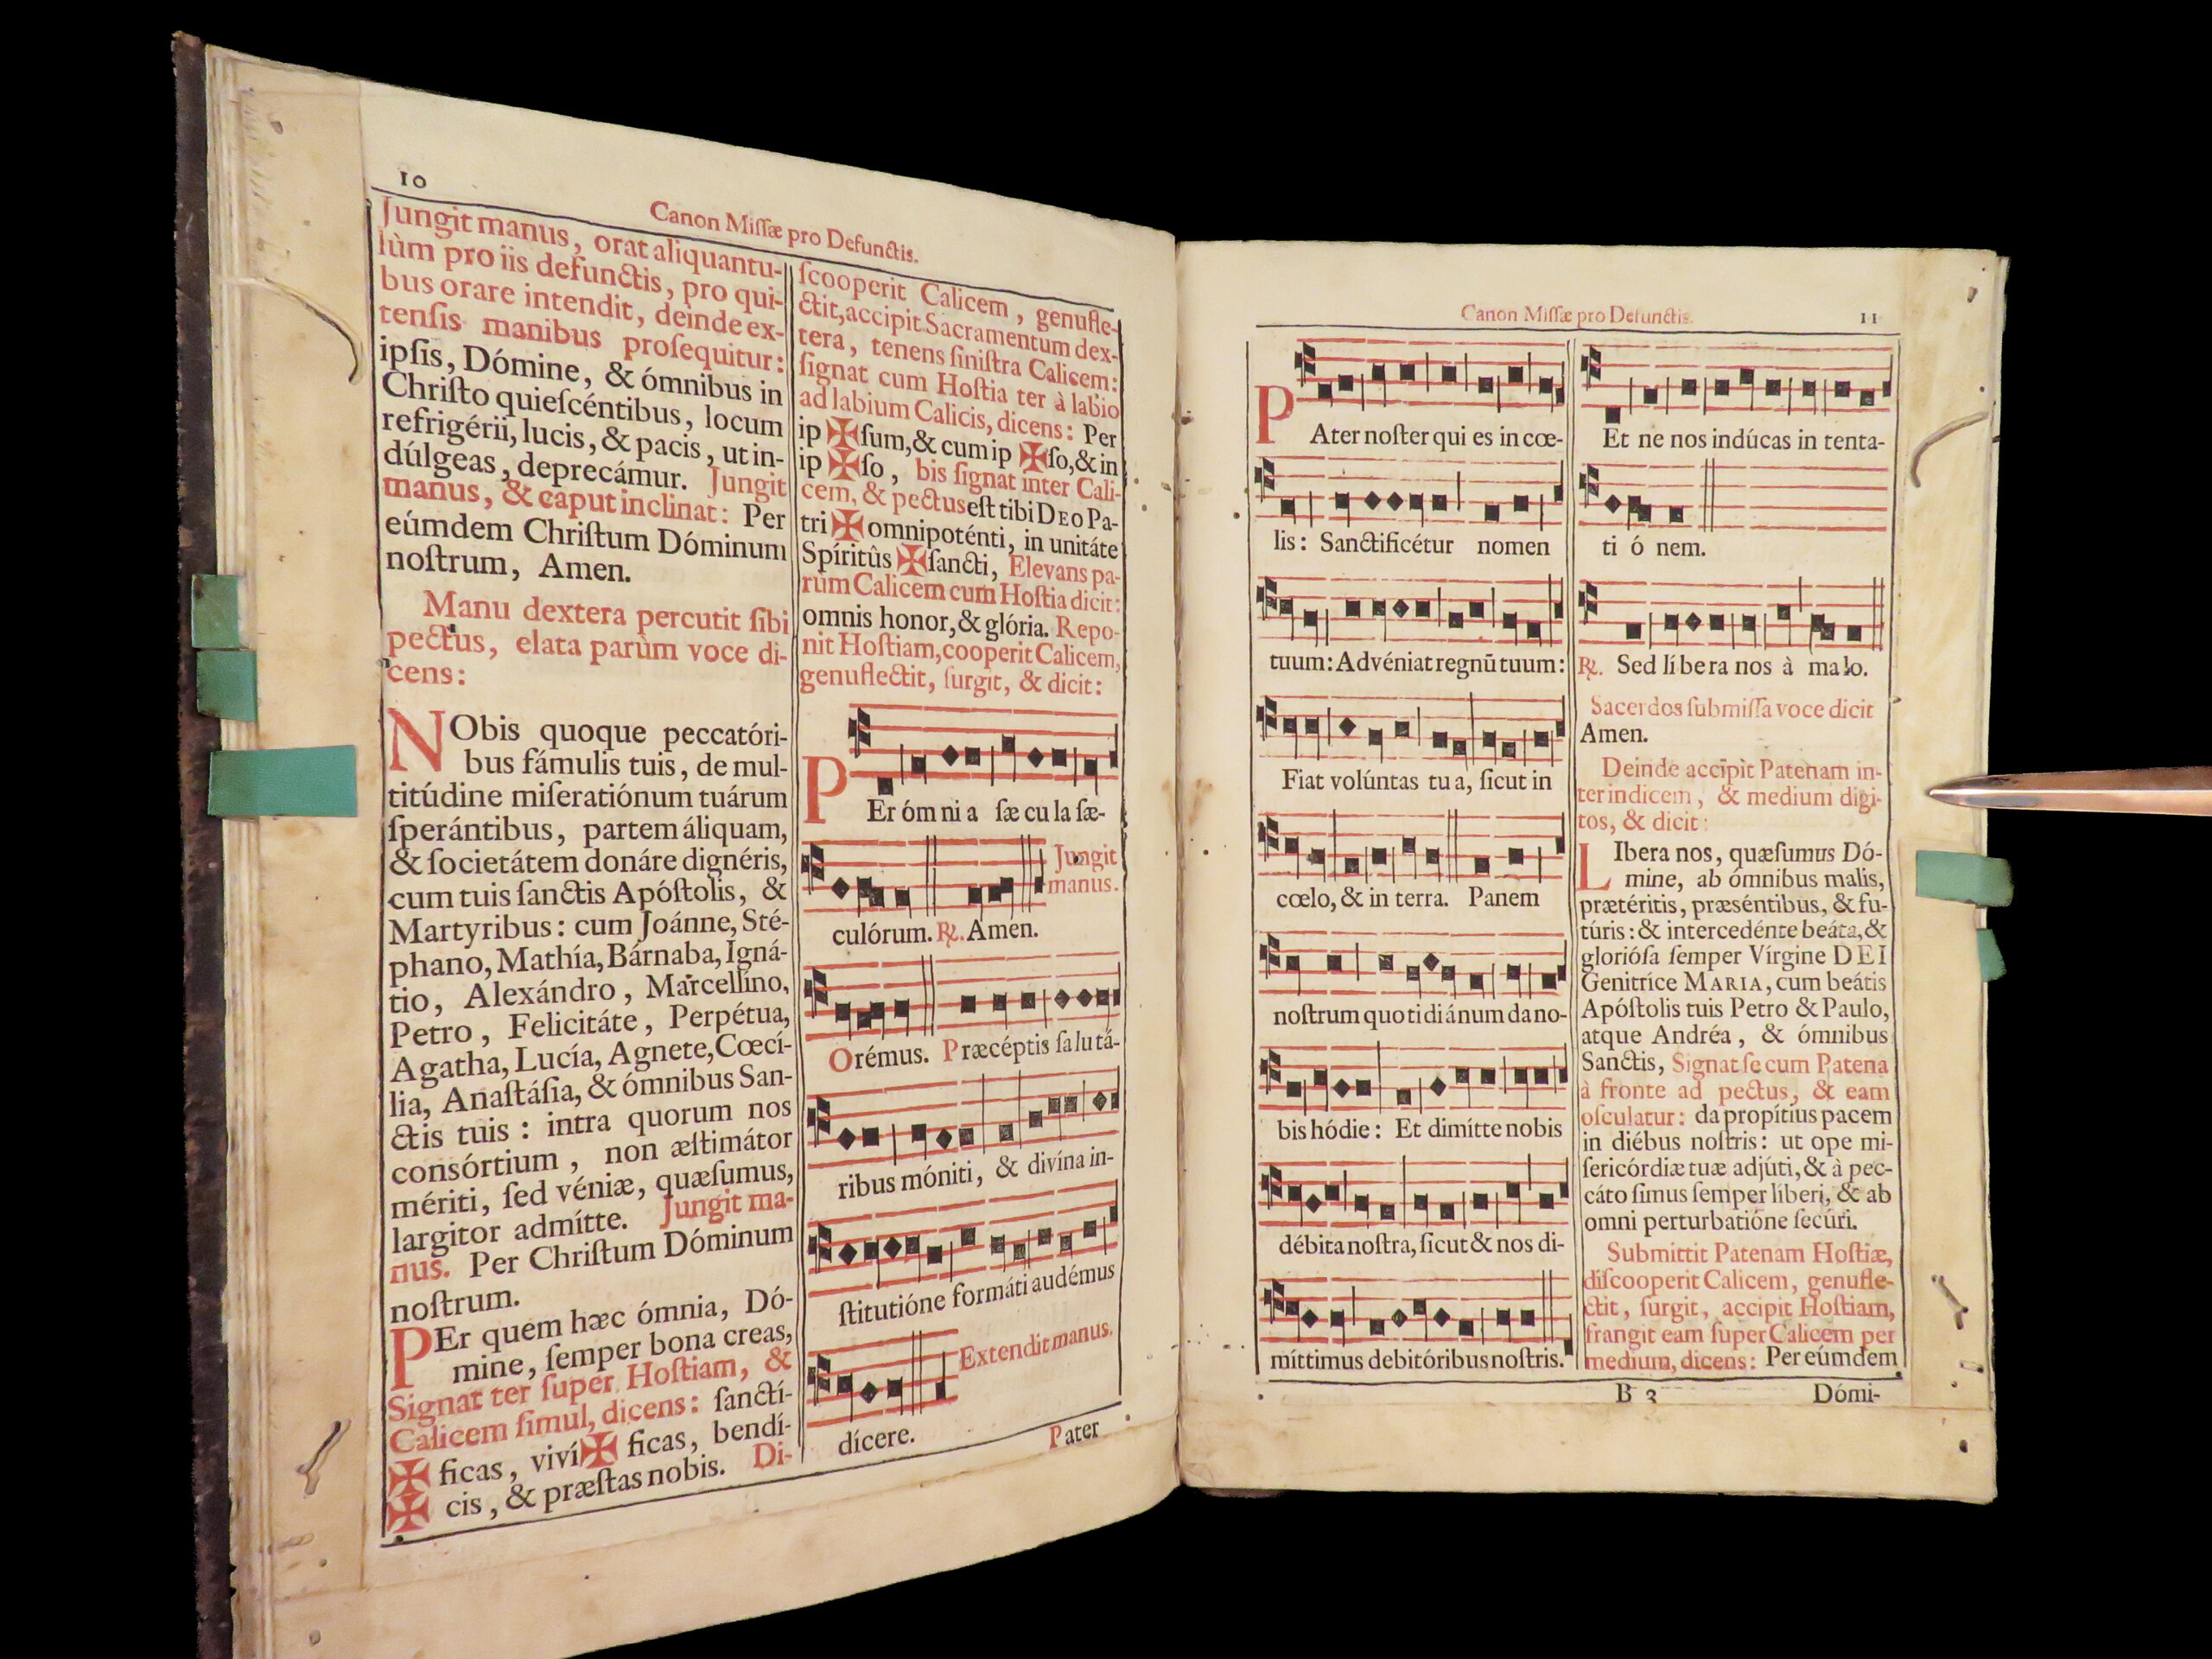 10
Canon Miſſæ pro Defunctis.
Jungit manus, orat aliquantu-
lùm pro iis defunctis, pro qui-
bus orare intendit, deinde ex-
tenſis manibus proſequitur:
ipſis, Dómine, & ómnibus in
Chriſto quieſcéntibus, locum
refrigérii, lucis, & pacis, ut in-
dúlgeas, deprecámur. Jungit
manus, & caput inclinat: Per
eúmdem Chriſtum Dóminum
noſtrum, Amen.
Manu dextera percutit ſibi
pectus, elata parùm voce di-
cens:
NObis quoque peccatóri-
bus fámulis tuis, de mul-
titúdine miſeratiónum tuárum
ſperántibus, partem áliquam,
& ſocietátem donáre dignéris,
cum tuis ſanctis Apóſtolis, &
Martyribus: cum Joánne, Sté-
phano, Mathía, Bárnaba, Igná-
tio, Alexándro, Marcellíno,
Petro, Felicitáte, Perpétua,
Agatha, Lucía, Agnete, Cœcí-
lia, Anaſtáſia, & ómnibus San-
ctis tuis: intra quorum nos
conſórtium, non æſtimátor
mériti, ſed véniæ, quæſumus,
largitor admítte. Jungit ma-
nus. Per Chriſtum Dóminum
noſtrum.
PEr quem hæc ómnia, Dó-
mine, ſemper bona creas,
Signat ter ſuper Hoſtiam, &
Calicem ſimul, dicens: ſanctí-
✠ ficas, viví✠ ficas, bendí-
✠ cis, & præſtas nobis. Di-
ſcooperit Calicem, genufle-
ctit, accipit Sacramentum dex-
tera, tenens ſiniſtra Calicem:
ſignat cum Hoſtia ter à labio
ad labium Calicis, dicens: Per
ip ✠ ſum, & cum ip ✠ ſo, & in
ip ✠ ſo, bis ſignat inter Cali-
cem, & pectus eſt tibi DEO Pa-
tri ✠ omnipoténti, in unitáte
Spíritûs ✠ ſancti, Elevans pa-
rùm Calicem cum Hoſtia dicit:
omnis honor, & glória. Repo-
nit Hoſtiam, cooperit Calicem,
genuflectit, ſurgit, & dicit:
PEr óm ni a ſæ cu la ſæ-
Jungit
manus.
culórum. ℟. Amen.
Orémus. Præcéptis ſa lu tá-
ribus móniti, & divína in-
ſtitutióne formáti audémus
Extendit manus.
dícere.
Pater
Canon Miſſæ pro Defunctis.
11
PAter noſter qui es in cœ-
lis: Sanctificétur nomen
tuum: Advéniat regnū tuum:
Fiat volúntas tu a, ſicut in
cœlo, & in terra. Panem
noſtrum quo ti di ánum da no-
bis hódie: Et dimítte nobis
débita noſtra, ſicut & nos di-
míttimus debitóribus noſtris.
Et ne nos indúcas in tenta-
ti ó nem.
℟. Sed lí be ra nos à ma lo.
Sacerdos ſubmiſſa voce dicit
Amen.
Deinde accipit Patenam in-
ter indicem, & medium digi-
tos, & dicit:
LIbera nos, quæſumus Dó-
mine, ab ómnibus malis,
prætéritis, præséntibus, & fu-
túris: & intercedénte beáta, &
glorióſa ſemper Vírgine DEI
Genitríce MARIA, cum beátis
Apóſtolis tuis Petro & Paulo,
atque Andréa, & ómnibus
Sanctis, Signat ſe cum Patena
à fronte ad pectus, & eam
oſculatur: da propítius pacem
in diébus noſtris: ut ope mi-
ſericórdiæ tuæ adjúti, & à pec-
cáto ſimus ſemper líberi, & ab
omni perturbatióne ſecúri.
Submittit Patenam Hoſtiæ,
diſcooperit Calicem, genufle-
ctit, ſurgit, accipit Hoſtiam,
frangit eam ſuper Calicem per
medium, dicens: Per eúmdem
B 3
Dómi-